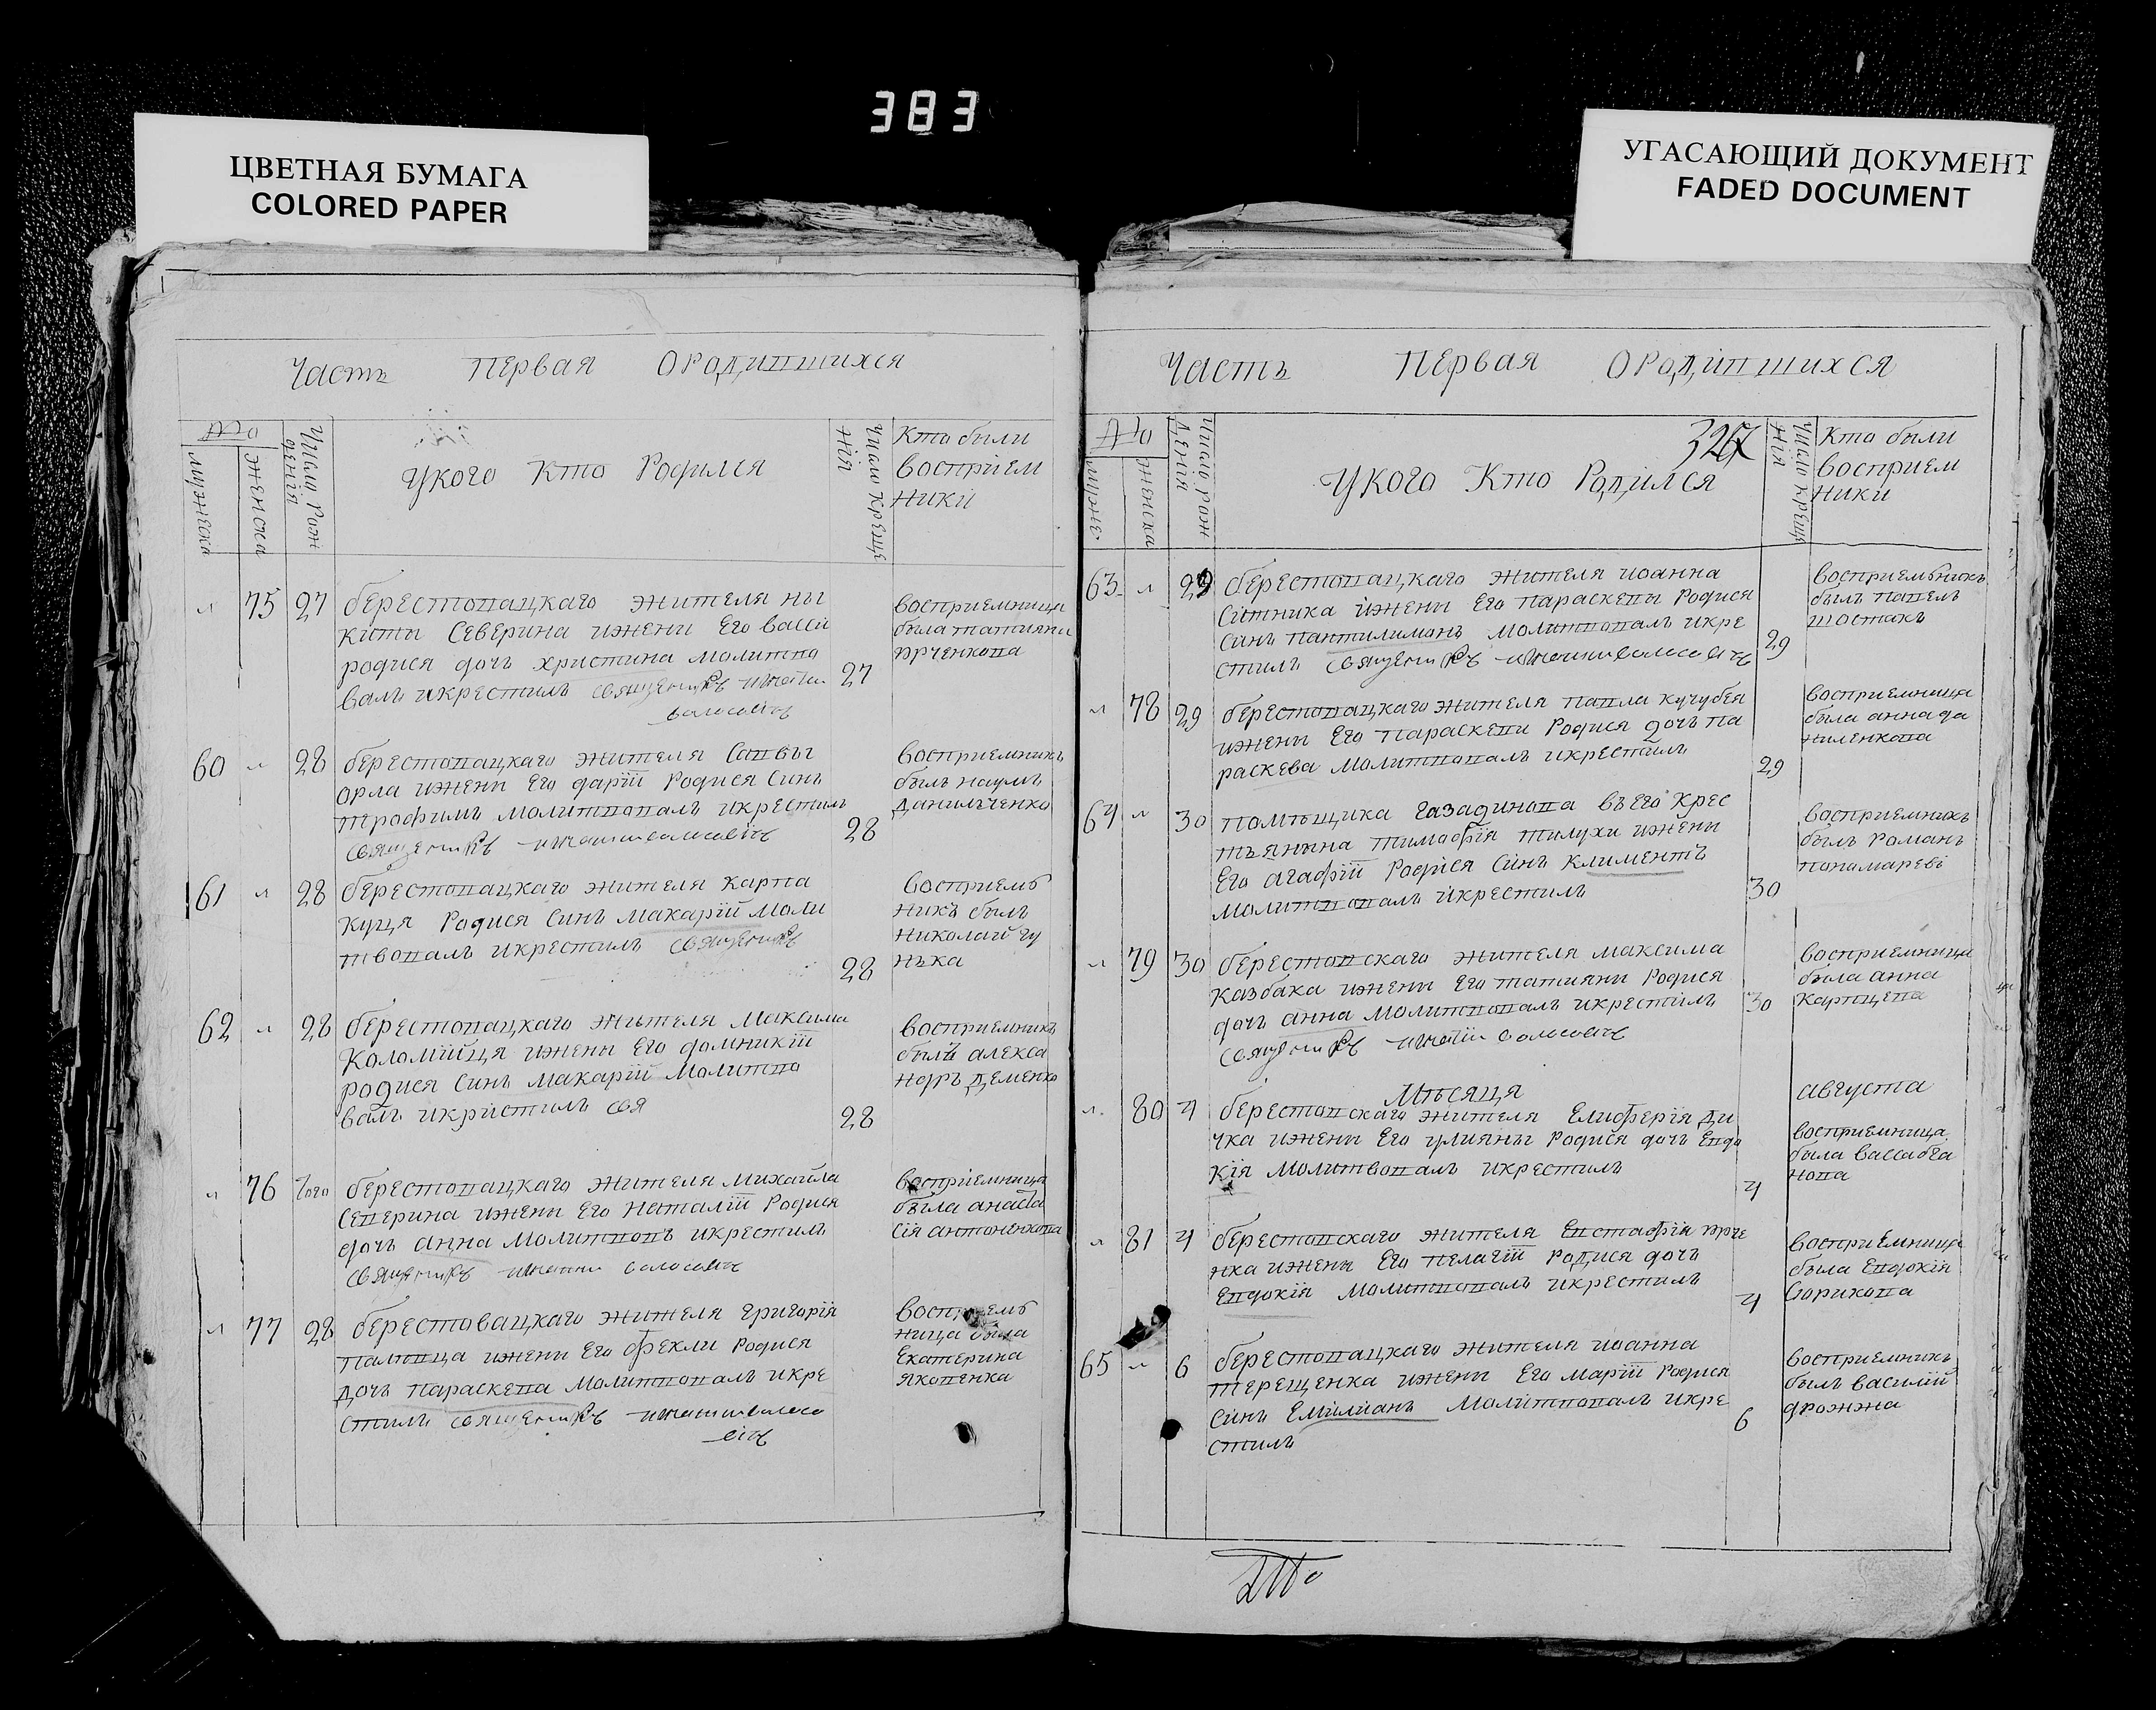 383
ЦВЕТНАЯ БУМАГА
COLORED PAPER
УГАСАЮЩИЙ ДОКУМЕНТ
FADED DOCUMENT
Часть первая ородившихся
№
мужеска
женска
Число рож
денія
укого Кто Родился
Число креще
нія
Кто были
восприем
ники
75 27
берестовацкаго жителя ны
киты Северина ижени Его васси
родися дочь христина молитво
валъ икрестилъ священникъ
27
восприемница
была татияна
юрченкова
60 28
берестовацкаго жителя Саввы
орла ижени Его дарііі Родися Синъ
трофимъ молитвовалъ икрестилъ
священникъ
28
восприемникъ
былъ наумъ
данильченко
61 28
берестовацкаго жителя карпа
куця Родися Синъ макарій моли
твовалъ икрестилъ священникъ
28
восприемъ
никъ былъ
николай гу
нька
62 28
берестовацкаго жителя максима
коломійця ижени Его домникіи
родися Синъ макарій молитво
валъ икристилъ свя
28
восприемникъ
былъ алекса
ндръ деменко
76
берестовацкаго жителя михайла
Северина ижени Его наталіи Родися
дочь анна молитвовъ икрестилъ
священникъ
восприемница
была анаста
сія антоненкова
77 28
берестовацкаго жителя григорія
ижени Его фекли Родися
дочь параскева молитвовалъ икре
стилъ священникъ
восприемъ
ница была
Екатерина
яковенка
Часть первая ородившихся
№
муже
женска
Число рож
денія
укого Кто Родился
326
Число креще
нія
Кто были
восприем
ники
63 29
берестовацкаго жителя иоанна
Ситника ижени Его параскевы Родися
Синъ пантилимонъ молитвовалъ икре
стилъ священникъ
29
восприемъникъ
былъ павелъ
шостакъ
78 29
берестовацкаго жителя павла кучубея
ижени Его параскеви Родися дочь па
раскева молитвовалъ икрестилъ
29
восприемница
была анна да
ниленкова
64 30
помъщика газадинова въ Его крес
тьянина тимофія тилухи ижени
Его агафіи Родися Синъ климентъ
молитвовалъ икрестилъ
30
восприемникъ
былъ Романъ
пономаревъ
79 30
берестовскаго жителя максима
казбака ижени Его татияни Родися
дочь анна молитвовалъ икрестилъ
священникъ
30
восприемница
была анна
карпцева
мъсяця августа
80 4
берестовскаго жителя Елиоферія ди
чка ижени Его улияны Родися дочь Евдо
кія молитвовалъ икрестилъ
4
восприемница
была васса бга
нова
81 4
берестовскаго жителя Евстафія юрче
нка ижени Его пелагіи Родися дочь
Евдокія молитвовалъ икрестилъ
4
восприЕмница
была Евдокія
борикова
65 6
берестовацкаго жителя иоанна
терещенка ижени Его маріи Родися
Синъ Емилианъ молитвовалъ икре
стилъ
6
восприемникъ
былъ василій
дрожжа